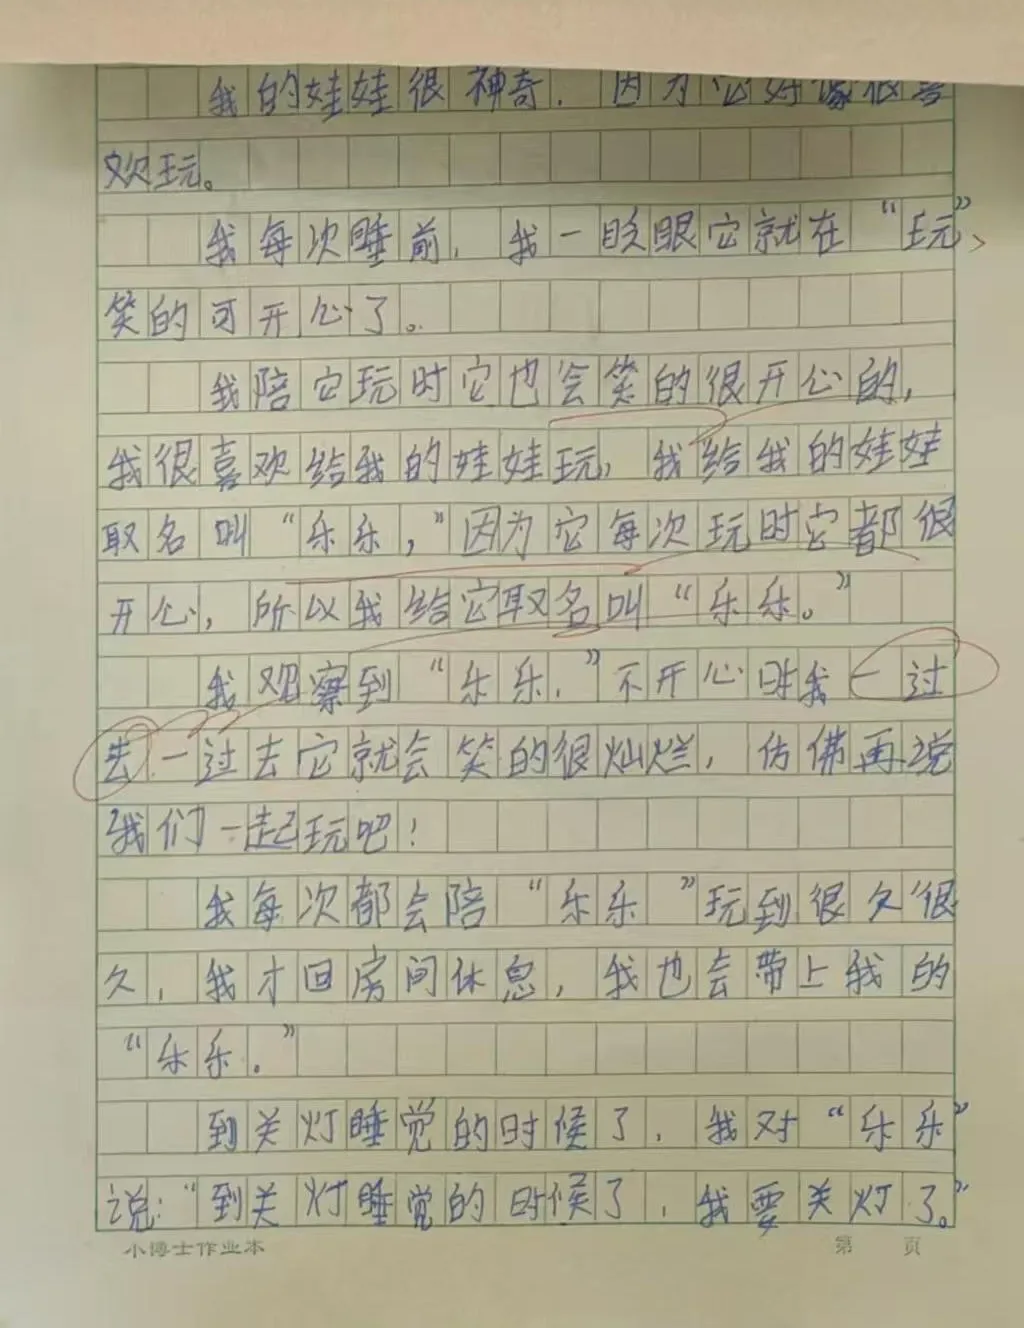 我的娃娃很神奇，因为它好像很喜
欢玩。
我每次睡前，我一眨眼它就在“玩”、
笑的可开心了。
我陪它玩时它也会笑的很开心的，
我很喜欢给我的娃娃玩，我给我的娃娃
取名叫“乐乐，”因为它每次玩时它都很
开心，所以我给它取名叫“乐乐。”
我观察到“乐乐，”不开心时我一过
去一过去它就会笑的很灿烂，仿佛再说
我们一起玩吧！
我每次都会陪“乐乐”玩到很久很
久，我才回房间休息，我也会带上我的
“乐乐。”
到关灯睡觉的时候了，我对“乐乐”
说：“到关灯睡觉的时候了，我要关灯了。”
小博士作业本
第 页